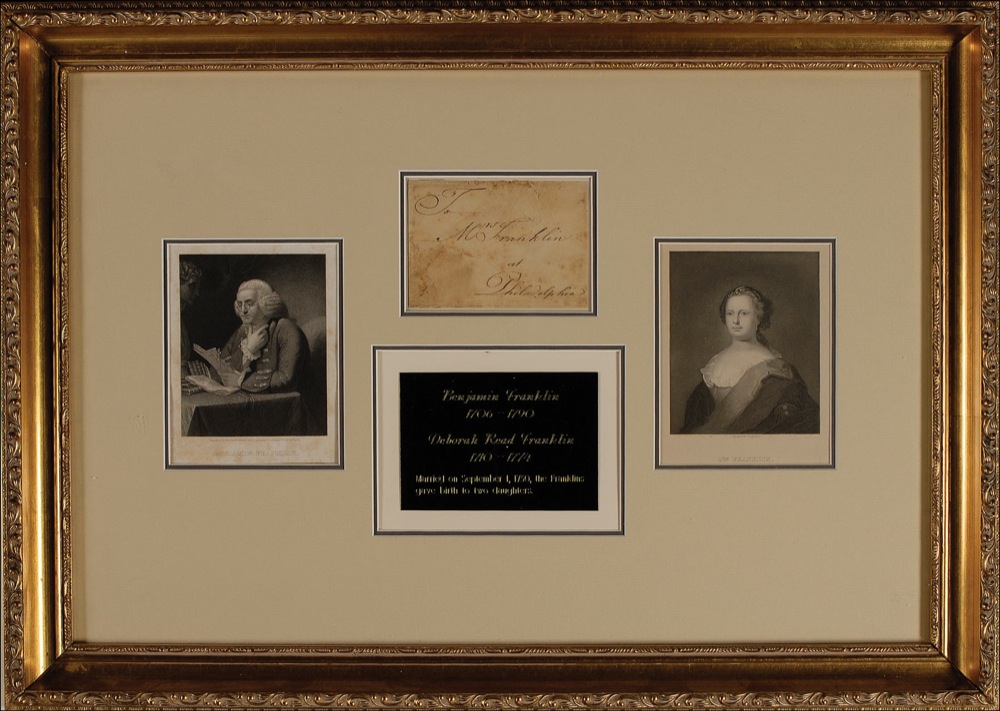 To
Mrs. Franklin
at
Philadelphia
Benjamin Franklin
1706 - 1790
Deborah Read Franklin
1710 - 1774
Married on September 1, 1730, the Franklins
gave birth to two daughters.
FRANKLIN.